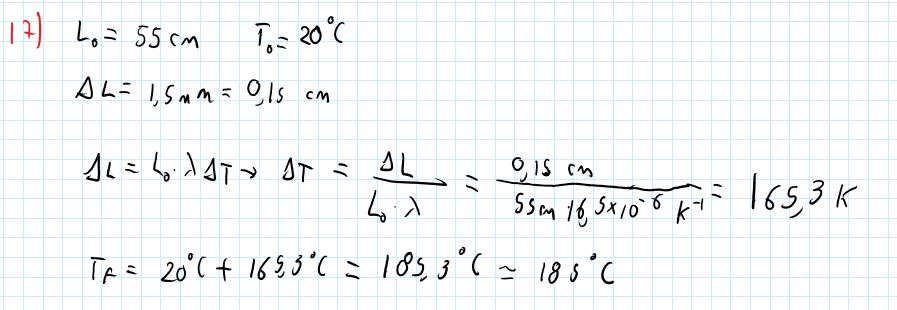 17) L₀ = 55 cm T₀ = 20°C
ΔL = 1,5 mm = 0,15 cm
ΔL = L₀·λ ΔT → ΔT = ΔL / L₀·λ = 0,15 cm / 55cm 16,5×10⁻⁶ K⁻¹ = 165,3 K
T_F = 20°C + 165,3°C = 185,3°C ≃ 185°C